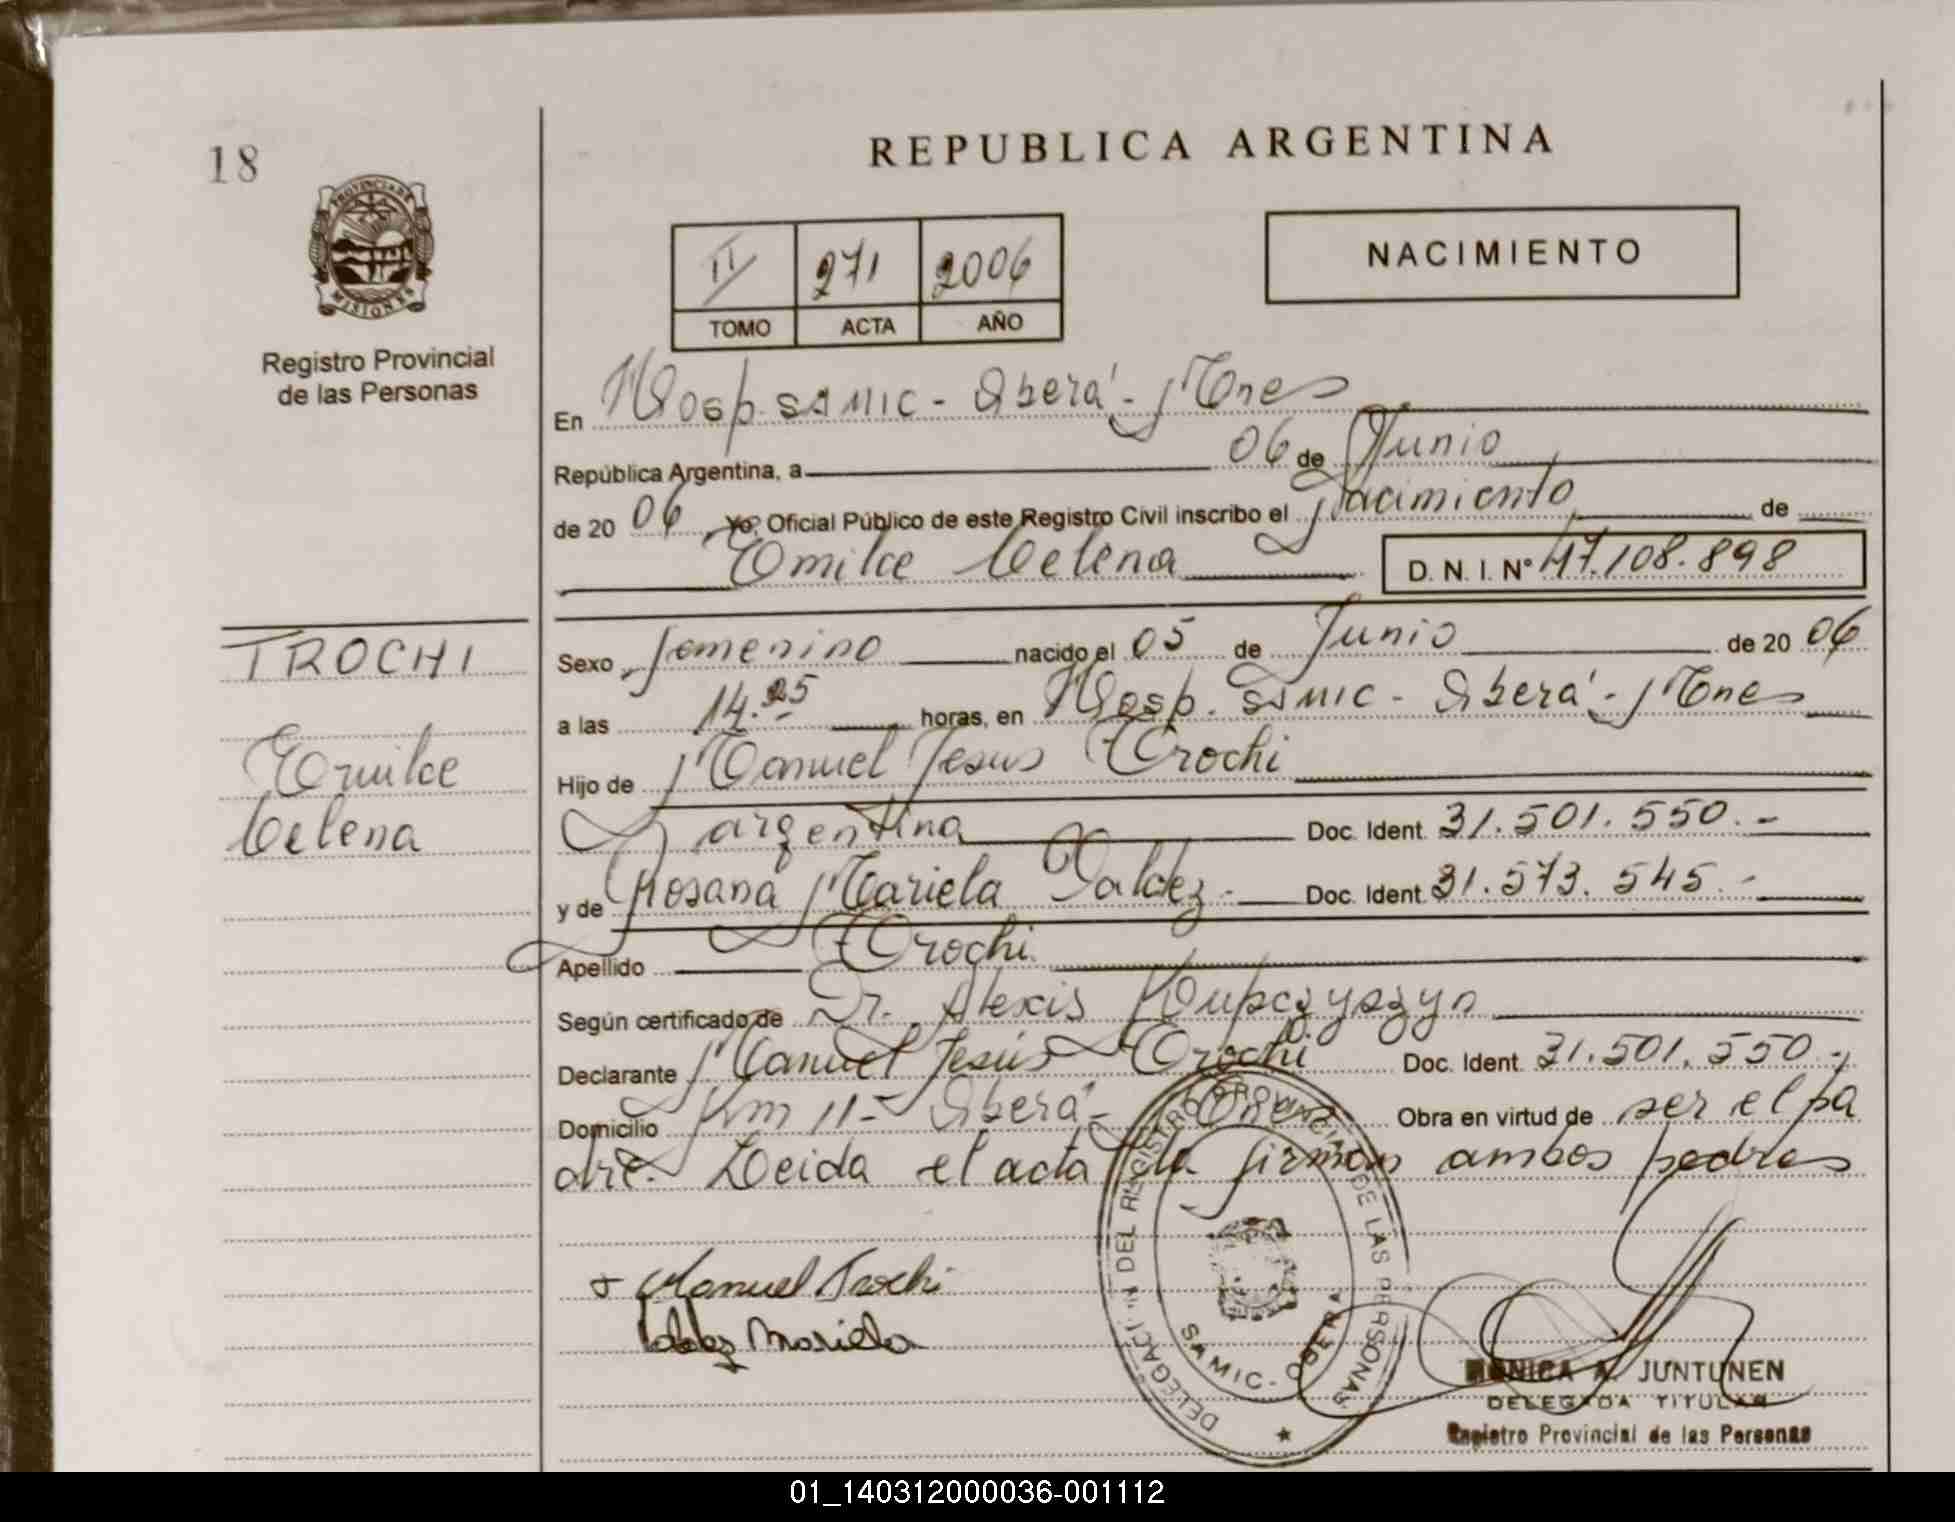 18
REPUBLICA ARGENTINA
PROVINCIA DE
MISIONES
Registro Provincial
de las Personas
II 271 2006
TOMO ACTA AÑO
NACIMIENTO
En Hosp. SAMIC - Oberá - Mnes
República Argentina, a 06 de Junio
de 20 06 Yo, Oficial Público de este Registro Civil inscribo el Nacimiento de
Emilce Celena D. N. I. Nº 47.108.898
TROCHI
Emilce
Celena
Sexo femenino nacido el 05 de Junio de 20 06
a las 14.25 horas, en Hosp. SAMIC - Oberá - Mnes
Hijo de Manuel Jesus Trochi
argentina Doc. Ident. 31.501.550.-
y de Rosana Mariela Valdez.- Doc. Ident. 31.573.545.-
Apellido Trochi
Según certificado de Dr. Alexis
Declarante Manuel Jesús Trochi Doc. Ident. 31.501.550.-
Domicilio Km 11 - Oberá - Mnes Obra en virtud de ser el pa
dre. Leida el acta la firman ambos padres
Manuel Trochi
Valdez Mariela
DELEGACION DEL REGISTRO PROVINCIAL DE LAS PERSONAS
SAMIC - OBERA
MONICA A. JUNTUNEN
DELEGADA TITULAR
Registro Provincial de las Personas
01_140312000036-001112